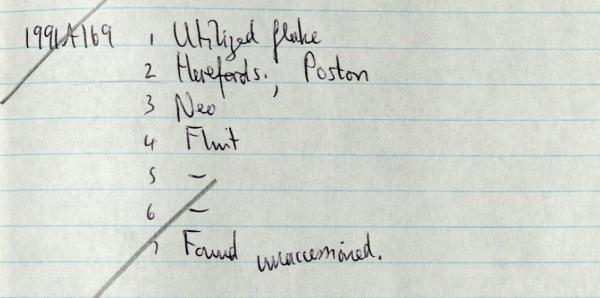 1991A169 1 Utilized flake
2 Herefords., Poston
3 Neo
4 Flint
5 –
6 –
7 Found unaccessioned.